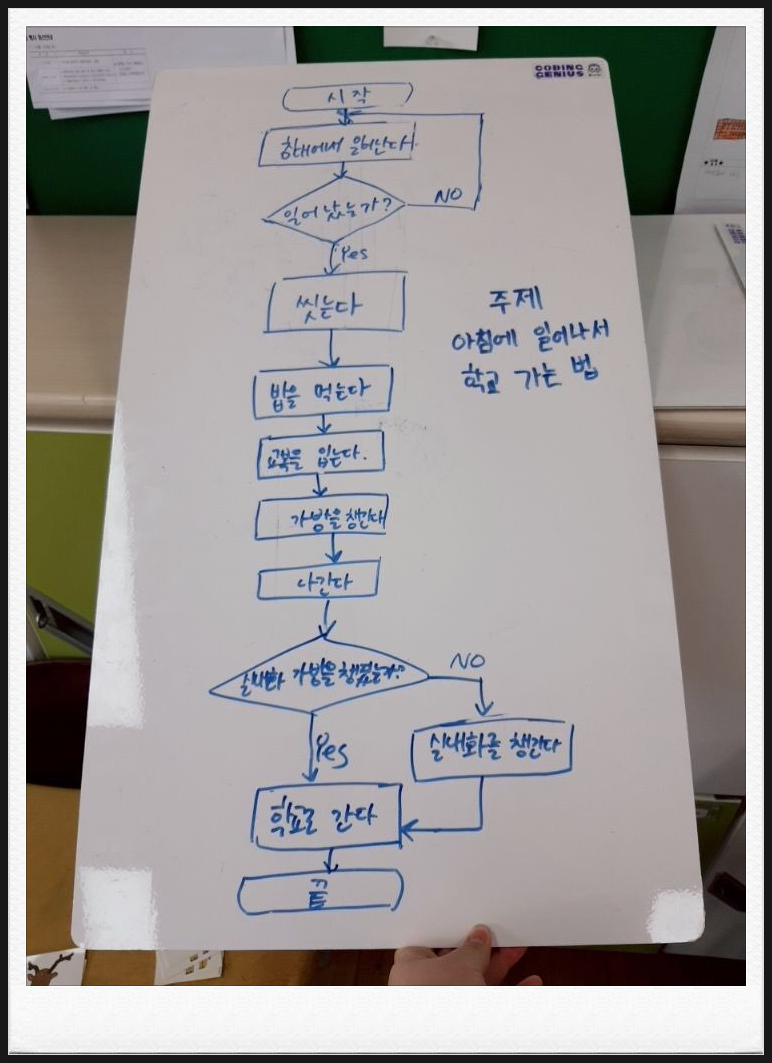 CODING
GENIUS
시작
침대에서 일어난다.
일어났는가?
NO
Yes
씻는다
주제
아침에 일어나서
학교 가는 법
밥을 먹는다
교복을 입는다.
가방을 챙긴다
나간다
실내화 가방을 챙겼는가?
NO
Yes
실내화를 챙긴다
학교로 간다
끝